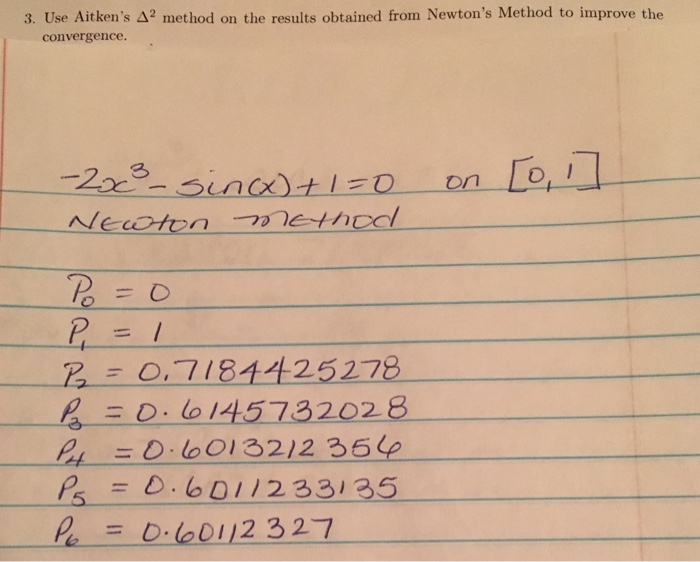 3. Use Aitken's Δ² method on the results obtained from Newton's Method to improve the
convergence.
-2x³ - sin(x) + 1 = 0 on [0, 1]
Newton method
P₀ = 0
P₁ = 1
P₂ = 0.7184425278
P₃ = 0.6145732028
P₄ = 0.6013212356
P₅ = 0.6011233135
P₆ = 0.60112327